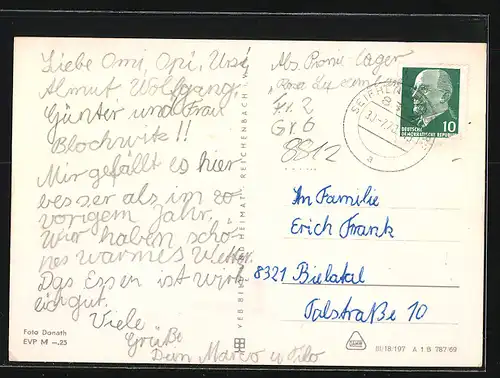 Liebe Omi, Opi, Ursi
Almut Wolfgang,
Günter und Frau
Blochwitz!!
Mir gefällt es hier
besser als im
vorigem Jahr.
Wir haben schö-
nes warmes Wetter.
Das Essen ist wirk-
lich gut.
Viele
Grüße
Marco u. Tilo
Foto Donath
EVP M –.25
VEB BILD UND HEIMAT REICHENBACH I. V.
Abs. Pionierlager
"Rosa Luxemburg
Gr. 6
8812
SEIFHEN
a
10
DEUTSCHE
DEMOKRATISCHE REPUBLIK
An Familie
Erich Frank
8321 Bielatal
Talstraße 10
III/18/197 A 1 B 787/69